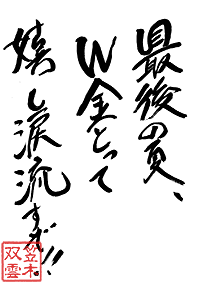 最後の夏、
W金とって
嬉し涙流すぞ!!
笠木
双雲